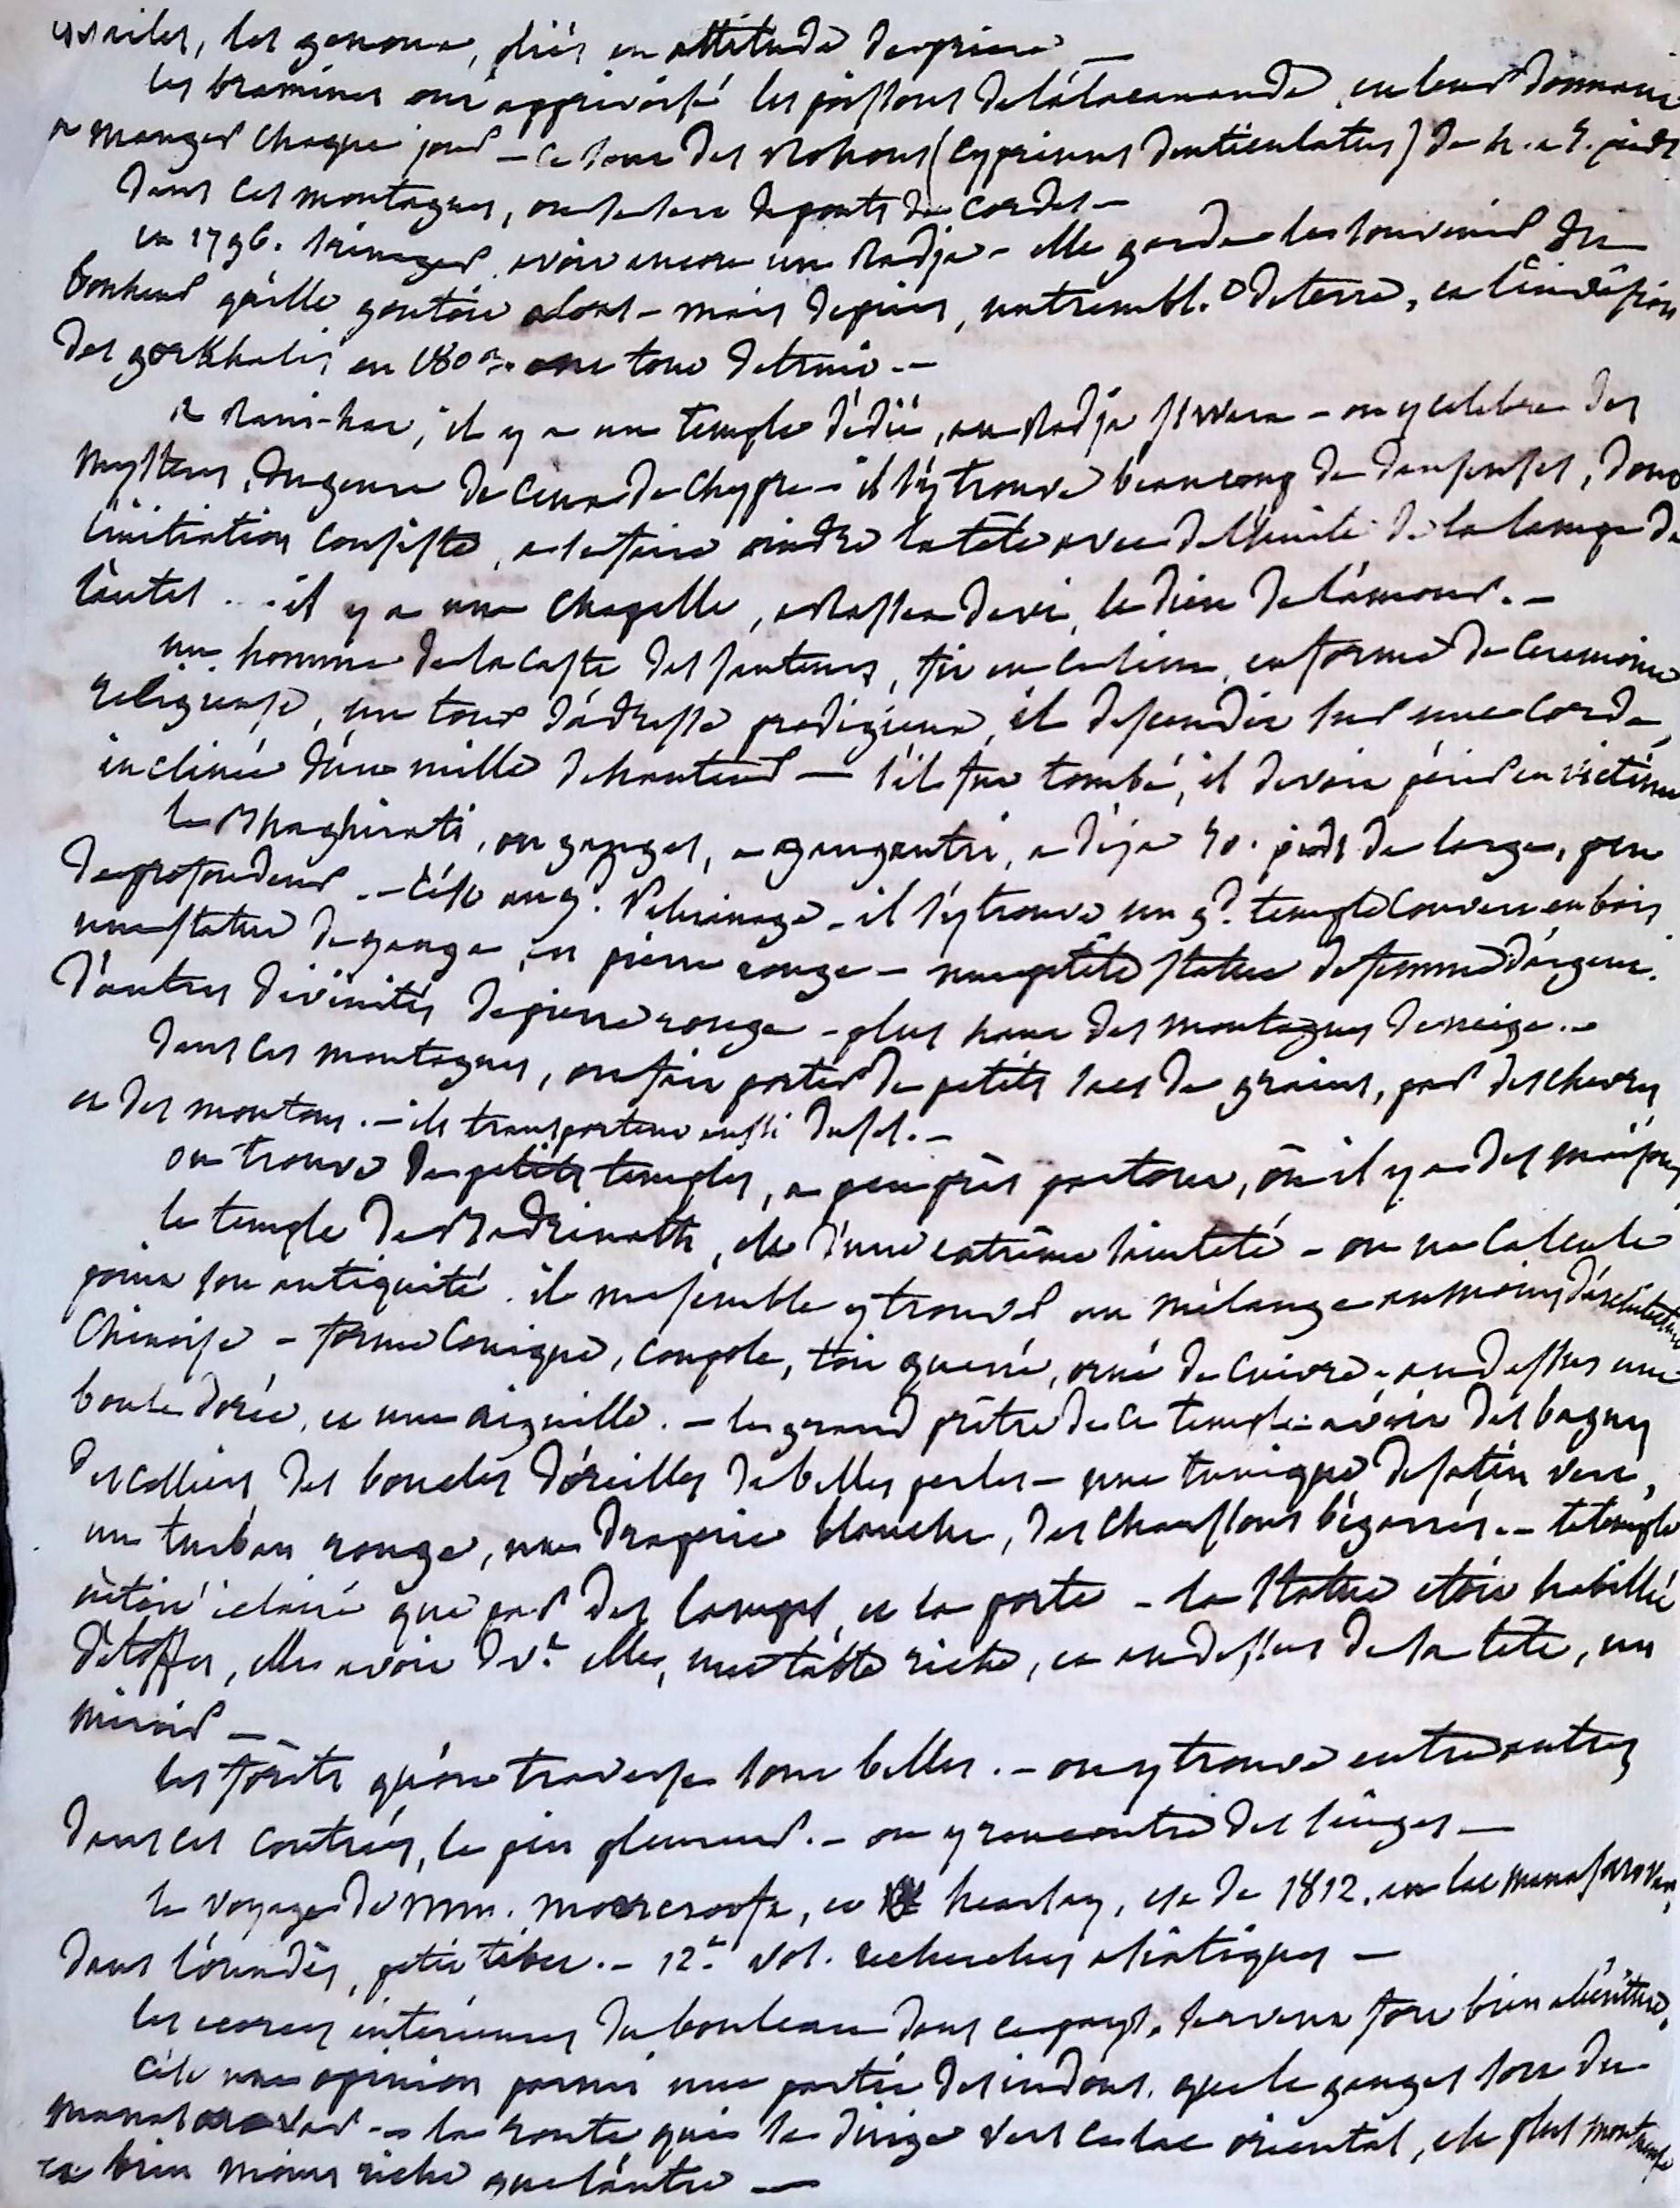 les genoux, pliés en attitude de priere —
les bramines ont apprivoisé les poissons de l'alacananda, en leur donnant
a manger chaque jour — ce sont des Rohous (Cyprinus denticulatus) de 4. a 5. pieds
dans ces montagnes, on se sert de ponts de cordes —
en 1796. Sirinager avoit encore un Radja — elle garde le souvenir du
bonheur qu'elle goutoit alors — mais depuis, un trembl.t de terre, et l'invasion
des gorkhalis en 180 ont tout detruit. —
a Rani-hat, il y a un temple dédié, au Radja — on y celebre des
mysteres, du genre de ceux de Chypre — il s'y trouve beaucoup de danseuses, dont
l'initiation consiste, a se faire oindre la tête avec de l'huile de la lampe de
l'autel . . . il y a une chapelle, a devi, le dieu de l'amour. —
un homme de la caste des sauteurs, fit en ce lieu, en forme de ceremonie
religieuse, un tour d'adresse prodigieux, il descendit sur une corde,
inclinée d'un mille de hauteur — s'il fut tombé, il devoit périr en victime
le Bhaghirati, ou ganges, a gangoutri, a déja 50. pieds de large, peu
de profondeur. — c'est un g.d Pelerinage — il s'y trouve un g.d temple couvert en bois
une statue de ganga, en pierre rouge — une petite statue de femme d'argent.
d'autres divinités de pierre rouge — plus haut des montagnes de neige. —
dans ces montagnes, on fait porter de petits sacs de grains, par des chevres
et des moutons. — ils transportent aussi du sel. —
on trouve de petits temples, a peu près partout, où il y a des maisons
le temple de Badrinath, est d'une extrême sainteté — on ne calcule
point son antiquité. il me semble y trouver un mélange au moins d'architecture
Chinoise — forme conique, coupole, toit quarré, orné de cuivre. au dessus une
boule dorée, et une aiguille. — le grand prêtre de ce temple avoit des bagues
des colliers, des boucles d'oreilles de belles perles — une tunique de satin vert,
un turban rouge, une draperie blanche, des chaussons bigarrés. — le temple
n'étoit éclairé que par des lampes et la porte — la statue etoit habillée
d'étoffes, elle avoit dev.t elle, une table riche, et au dessus de sa tête, un
miroir —
les forêts qu'on traverse sont belles. — on y trouve entre autres
dans ces contrées, le pin pleureur. — on y rencontre des singes —
le voyage de Mm. moorcroofts, et hearsay, est de 1812, au lac manasarovar,
dans l'oundès, petit tibet. — 12.e vol. recherches asiatiques —
les ecorces interieures du bouleau dans ce pays, servent fort bien
c'est une opinion parmi une partie des indous, que le ganges sort du
manasarovar — la route qui se dirige vers ce lac oriental, est plus montueuse
et bien moins riche que l'autre —